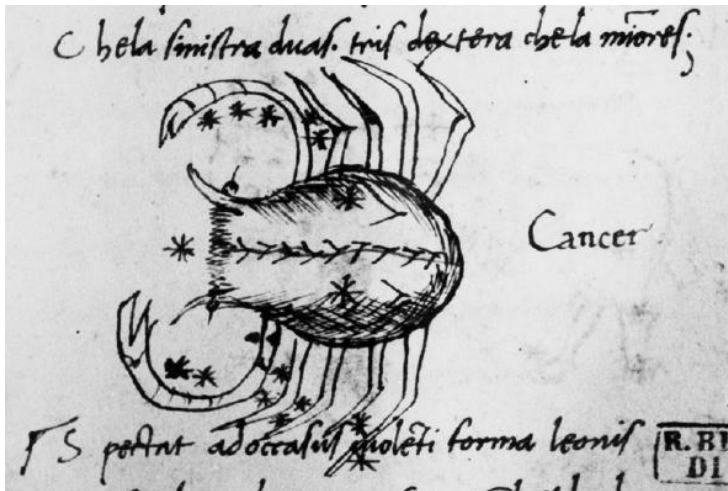 Chela sinistra duas. tris dextera chela mi͞ores;
Cancer
Spectat adoccasus violẽti forma leonis
R. BI
DI